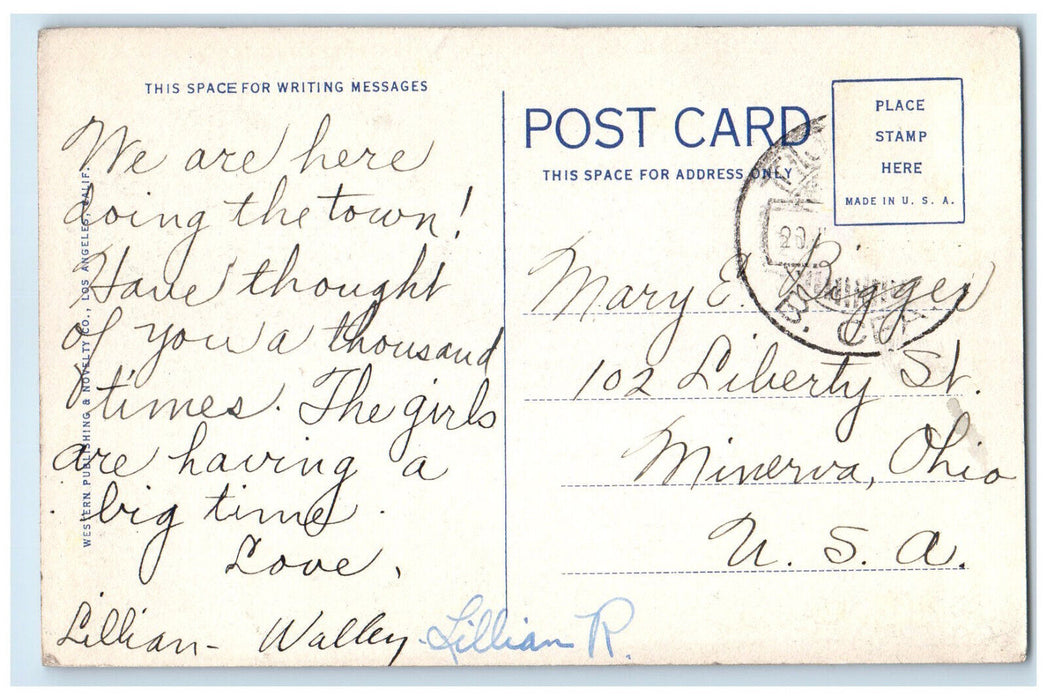 THIS SPACE FOR WRITING MESSAGES
We are here
doing the town!
Have thought
of you a thousand
times. The girls
are having a
big time.
Love,
Lillian - Walley - Lillian R.
WESTERN PUBLISHING & NOVELTY CO., LOS ANGELES, CALIF.
POST CARD
THIS SPACE FOR ADDRESS ONLY
PLACE
STAMP
HERE
MADE IN U. S. A.
Mary E. Bigger
102 Liberty St.
Minerva, Ohio
U. S. A.
B. C